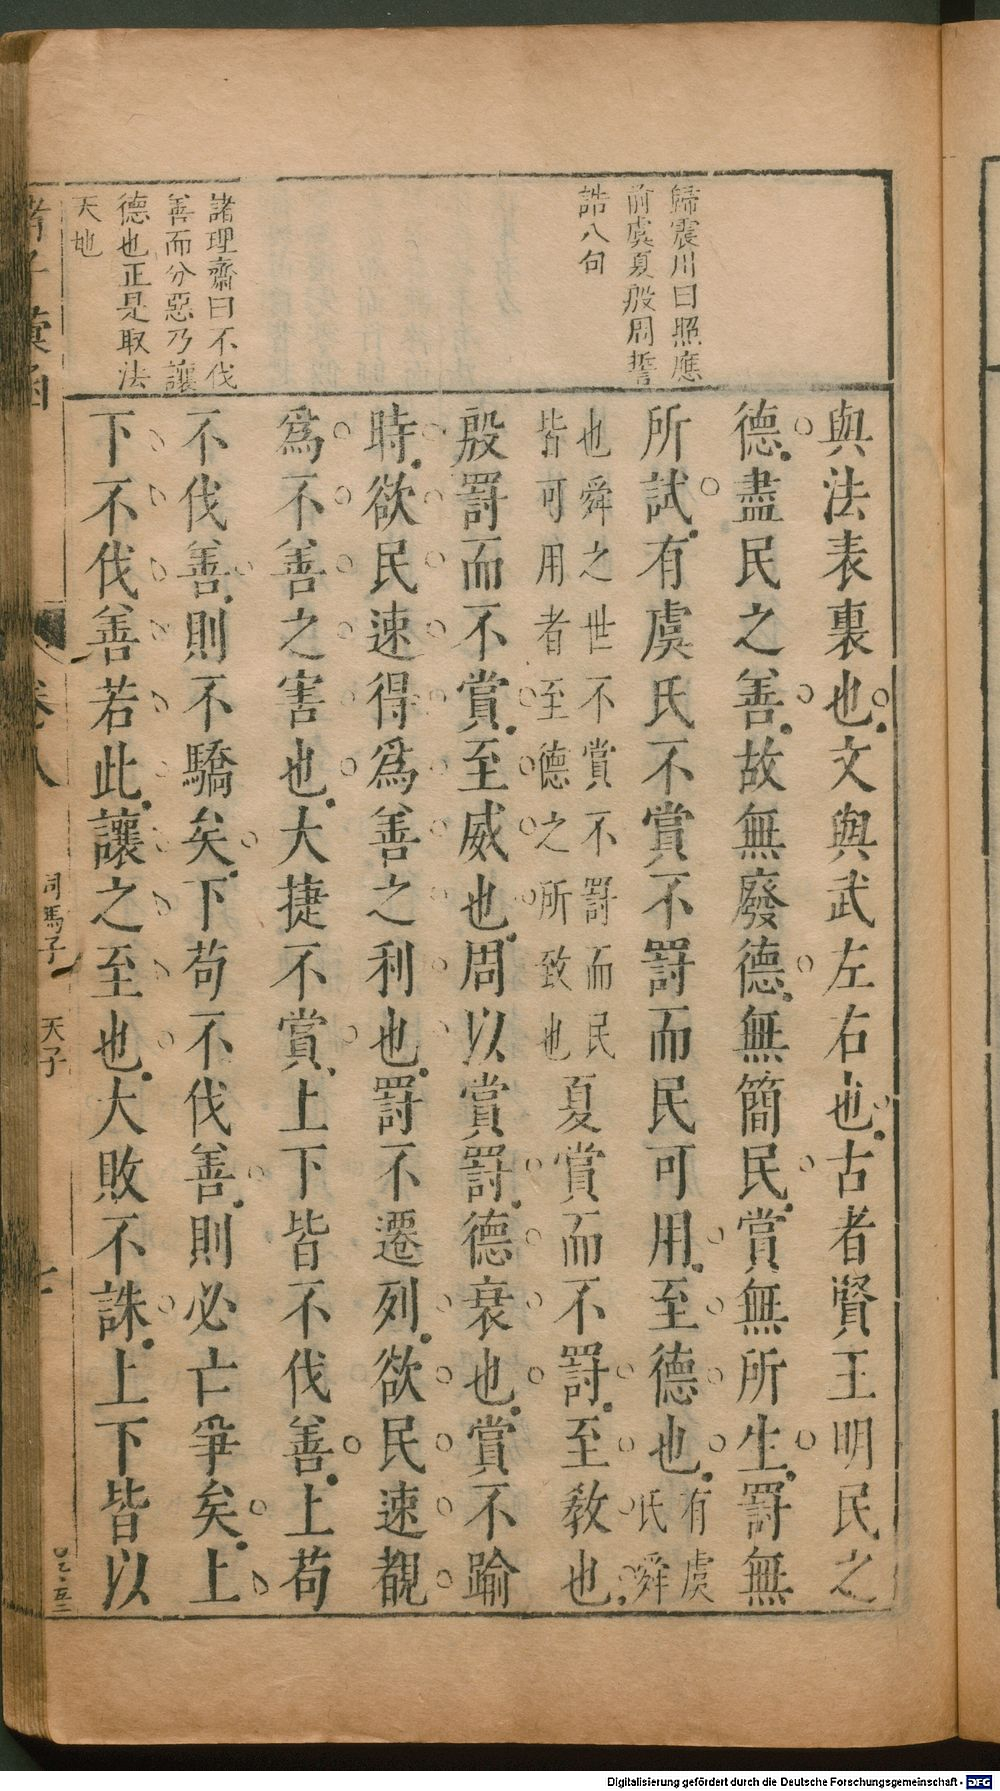 歸震川曰照應
前虞夏殷周誓
誥八句
諸理齋曰不伐
善而分惡乃讓
德也正是取法
天地
與法表裏也文與武左右也古者賢王明民之
德盡民之善故無廢德無簡民賞無所生罰無
所試有虞氏不賞不罰而民可用至德也有虞
氏舜
也舜之世不賞不罰而民
皆可用者至德之所致也
夏賞而不罰至教也
殷罰而不賞至威也周以賞罰德衰也賞不踰
時欲民速得為善之利也罰不遷列欲民速覩
為不善之害也大捷不賞上下皆不伐善上苟
不伐善則不驕矣下苟不伐善則必亡爭矣上
下不伐善若此讓之至也大敗不誅上下皆以
彚函
卷八
司馬子 天子
七
Digitalisierung gefördert durch die Deutsche Forschungsgemeinschaft - DFG